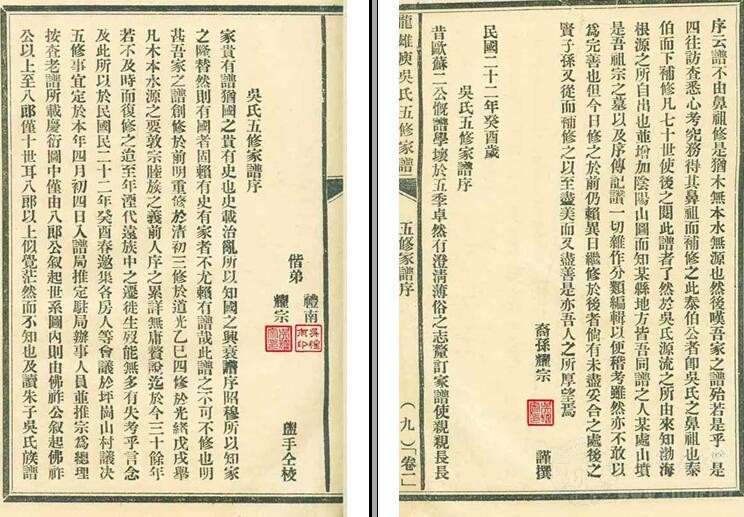 偕弟 禮南 耀宗 盥手仝校
吳氏五修家譜序
家貴有譜猶國之貴有史也史載治亂所以知國之興衰譜序昭穆所以知家
之隆替然則有國者固賴有史有家者不尤賴有譜哉此譜之不可不修也明
甚吾家之譜創修於前明重修於清初三修於道光乙巳四修於光緒戊戌舉
凡木本水源之要敦宗睦族之義前人序之累詳無庸贅說迄於今三十餘年
若不及時而復修之迨至年湮代遠族中之遷徙生歿能無多有失考乎言念
及此所以於民國民二十二年癸酉春邀集各房人等會議於坪崗山村議決
五修事宜定於本年四月初四日入譜局推定駐局辦事人員並推宗為總理
按查老譜所載慶衍圖中僅由八郎公叙起世系圖內則由佛祚公叙起佛祚
公以上至八郎僅十世耳八郎以上似覺茫然而不知也及讀朱子吳氏族譜
序云譜不由鼻祖修是猶木無本水無源也然後嘆吾家之譜殆若是乎於是
四往訪查悉心考究務得其鼻祖而補修之此泰伯公者卽吳氏之鼻祖也泰
伯而下補修凡七十世使後之閱此譜者了然於吳氏源流之所由來知渤海
根源之所自出也並增加陰陽山圖而知某縣地方皆吾同譜之人某處山墳
是吾祖宗之墓以及序傳記讚一切雜作分類編輯以便稽考雖然亦不敢以
為完善也但今日修之於前仍賴異日繼修於後者倘有未盡妥合之處後之
賢子孫又從而補修之以至盡美而又盡善是亦吾人之所厚望焉
裔孫耀宗 謹撰
民國二十二年癸酉歲
吳氏五修家譜序
昔歐蘇二公慨譜學壞於五季卓然有澄淸薄俗之志釐訂家譜使親親長長
吳氏五修家譜 五修家譜序 (九)「卷一」